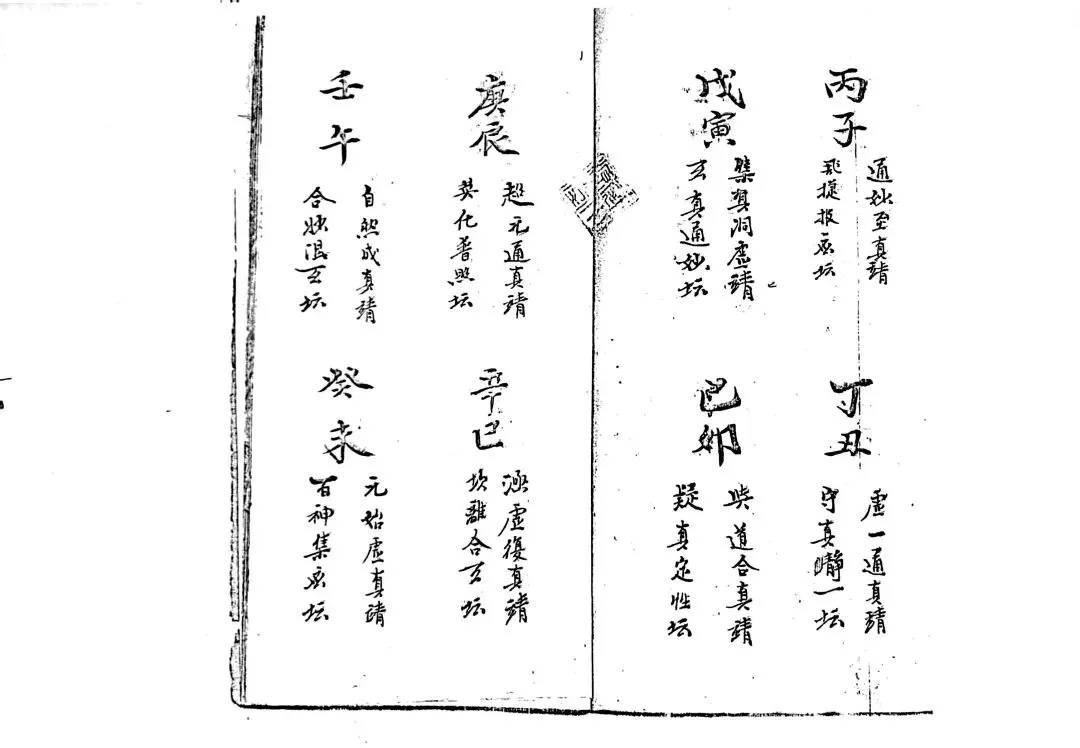 丙子
通妙至真靖
飛捷報应坛
丁丑
虚一通真靖
守真靜一坛
戊寅
集真洞虚靖
玄真通妙坛
己卯
與道合真靖
疑真定性坛
庚辰
超元通真靖
英化普照坛
辛巳
涵虚復真靖
坎離合玄坛
壬午
自然成真靖
合妙混玄坛
癸未
元始虚真靖
百神集应坛